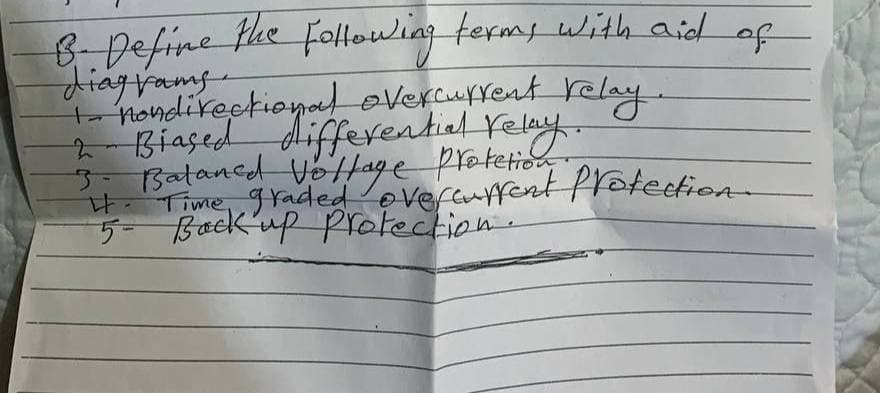 B- Define the following terms with aid of
diagrams.
1- nondirectional overcurrent relay.
2- Biased differential relay.
3- Balancd Voltage Protetion.
4- Time graded overcurrent Protection.
5- Back up Protection.